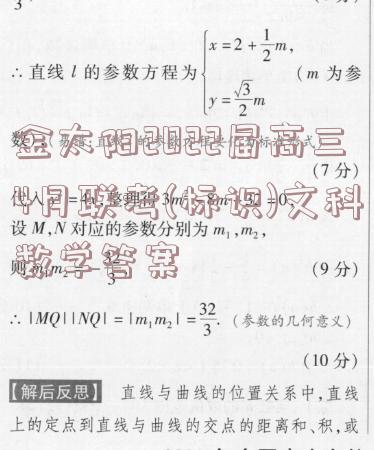 3
∴直线 l 的参数方程为{x=2+1/2m, y=√3/2m (m 为参
数).
(7 分)
代入 y²=4x, 整理得 3m²-8m-32=0,
设 M,N 对应的参数分别为 m₁,m₂,
则 m₁m₂=-32/3
(9 分)
∴|MQ||NQ|=|m₁m₂|=32/3. (参数的几何意义)
(10 分)
【解后反思】 直线与曲线的位置关系中,直线
上的定点到直线与曲线的交点的距离和、积,或
金太阳2022届高三
4月联考(标识)文科
数学答案